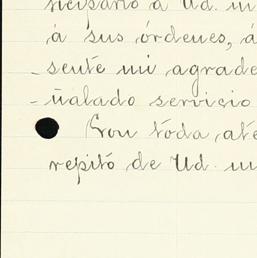 nersario a Ud. m
á sus órdenes, á
sente mi agrade
-ñalado servicio
Con toda ate
repito de Ud. m